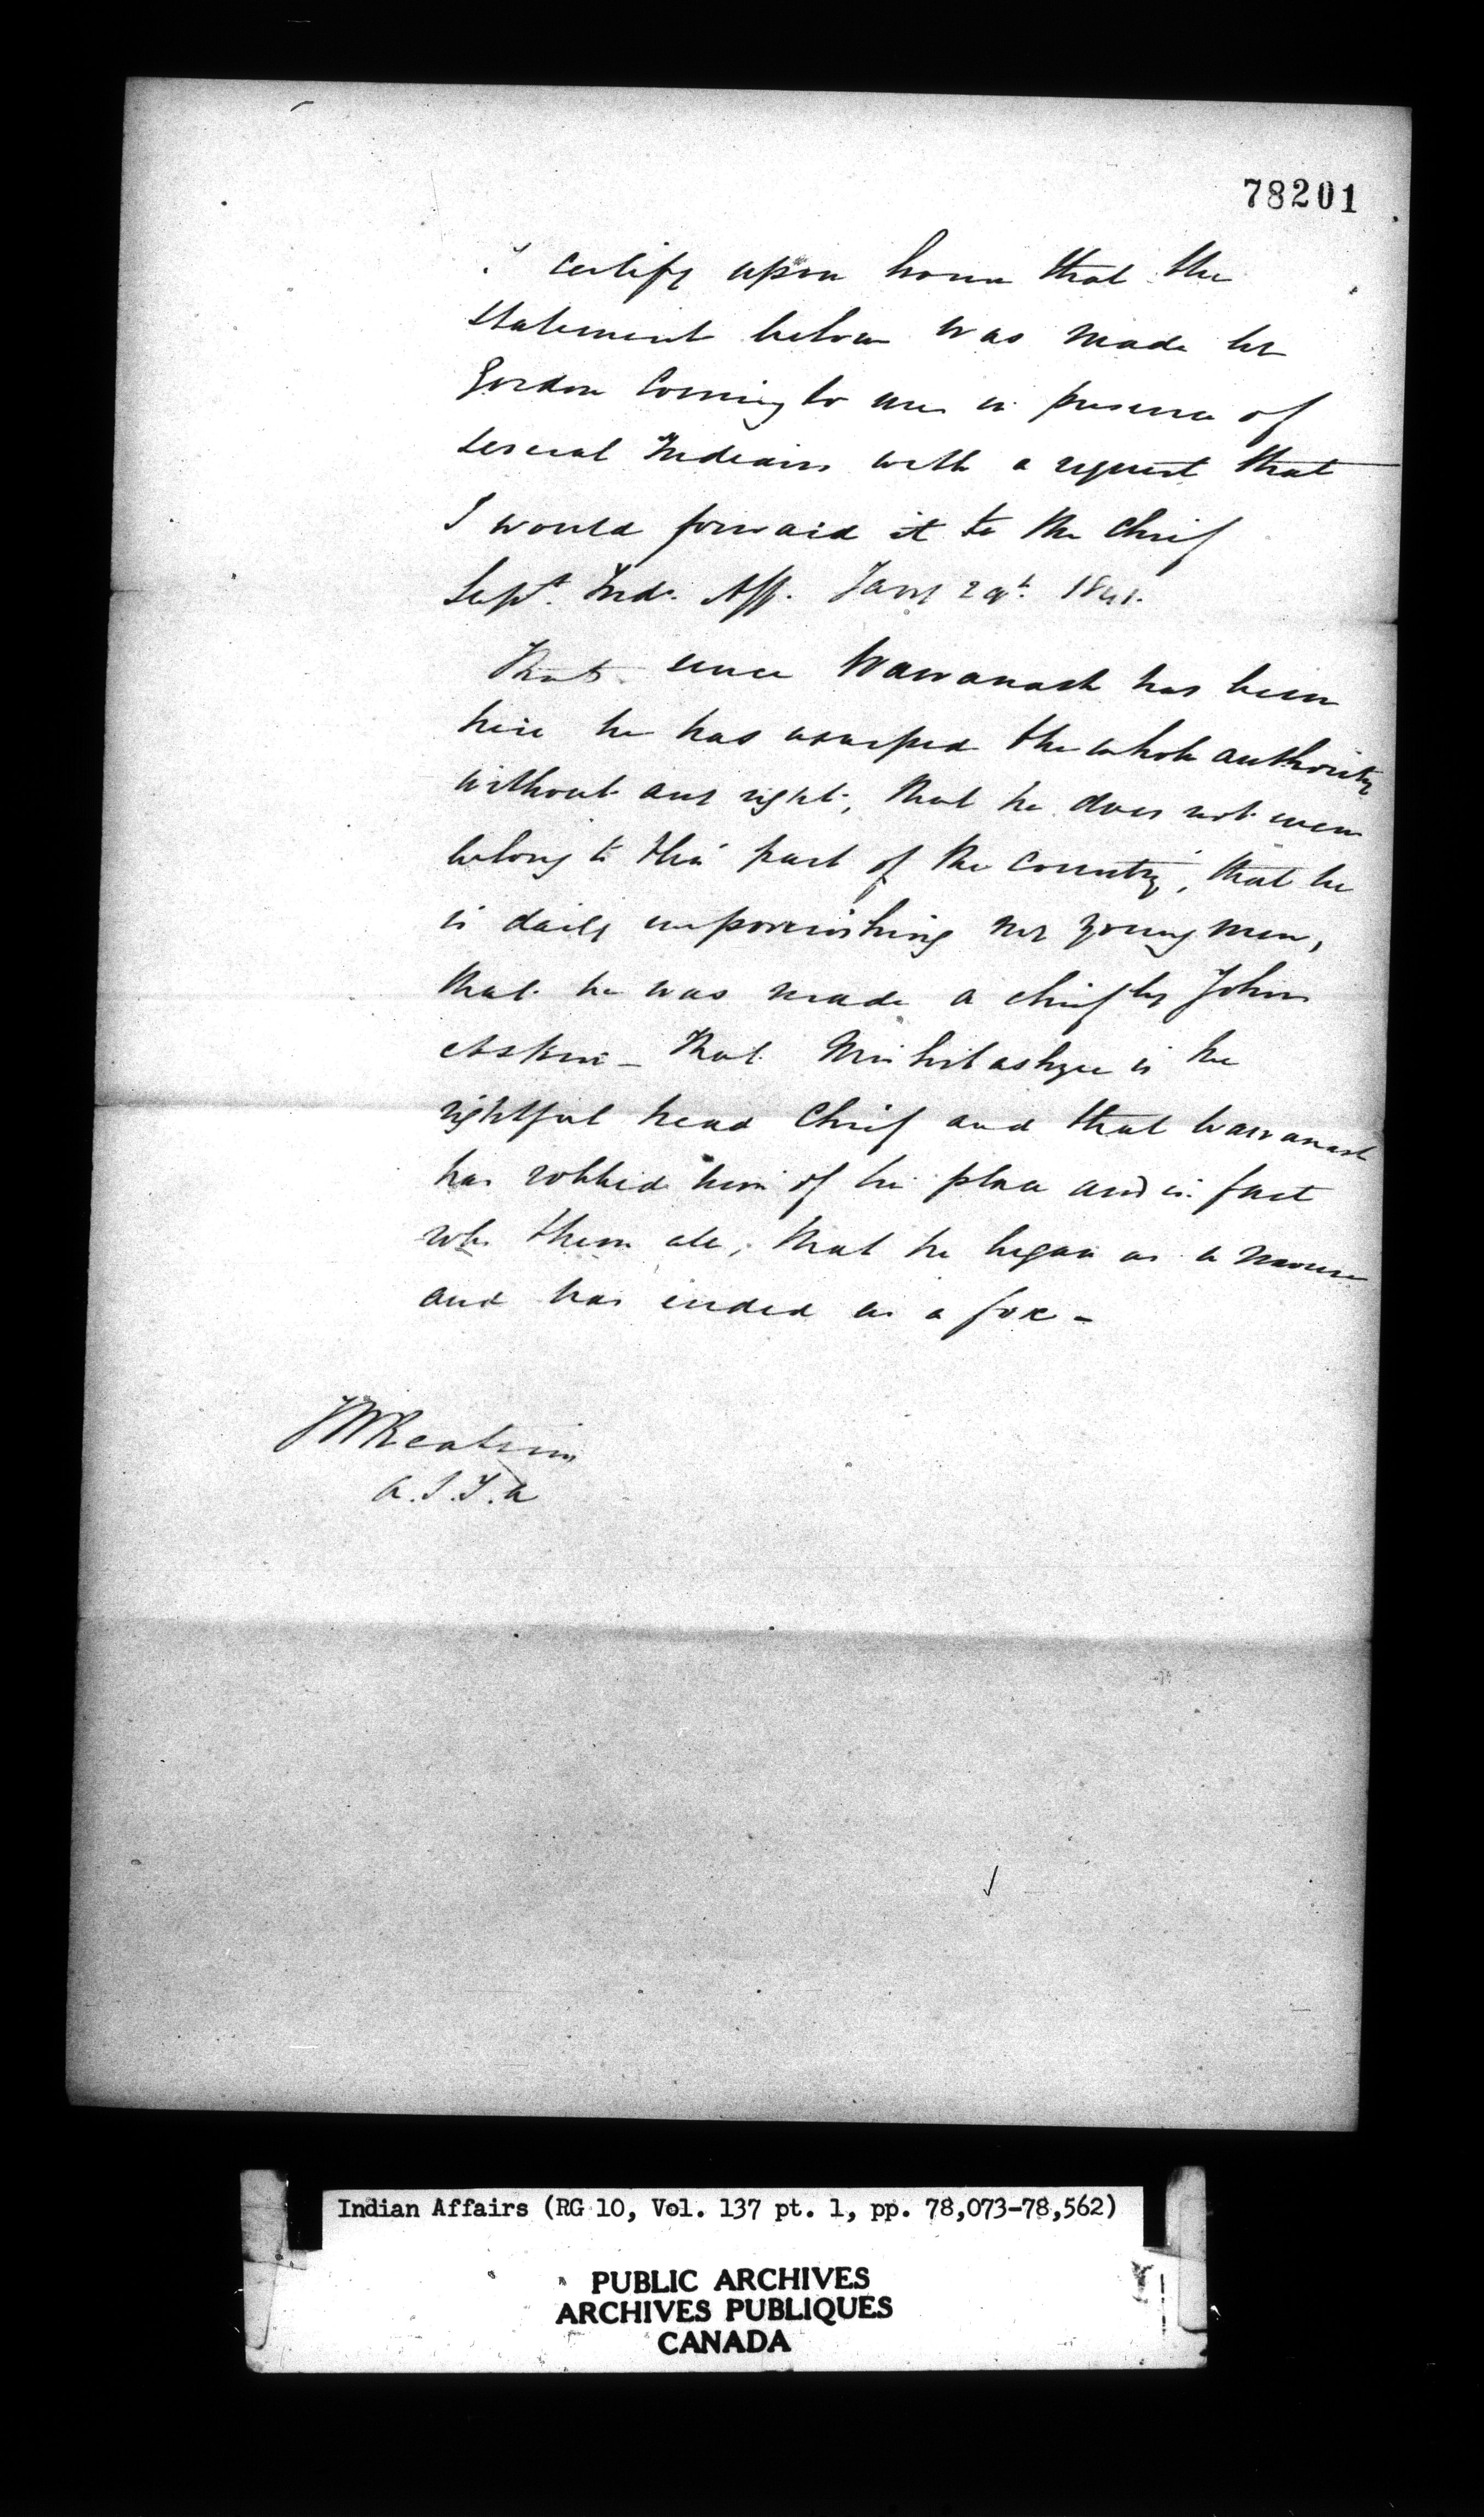 78201
I certify upon honor that the
statement below was made by
Gordon Coming to me in presence of
several Indians with a request that
I would forward it to the Chief
Supt. Ind. Aff. Jany 29th. 1841.
That since Wawanash has been
here he has usurped the whole authority
without any right, that he does not even
belong to this part of the country, that he
is daily impoverishing my young men,
that he was made a chief by John
Askin - that is the
rightful head Chief and that Wawanash
has robbed him of his place and in fact
robs them all, that he began as a mouse
and has ended as a fox -
JW Keating
A.S.I.A
Indian Affairs (RG 10, Vol. 137 pt. 1, pp. 78,073-78,562)
PUBLIC ARCHIVES
ARCHIVES PUBLIQUES
CANADA